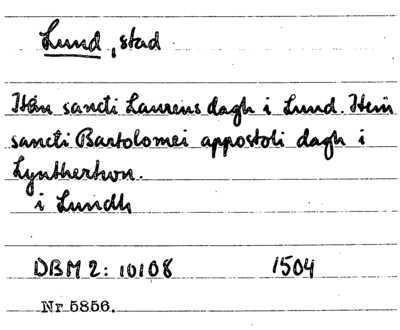 Lund, stad
Item sancti Laurens dagh i Lund. Item
sancti Bartolomei appostoli dagh i
Lyntherhwn.
i Lundh
DBM 2: 10108 1504
Nr 5856.